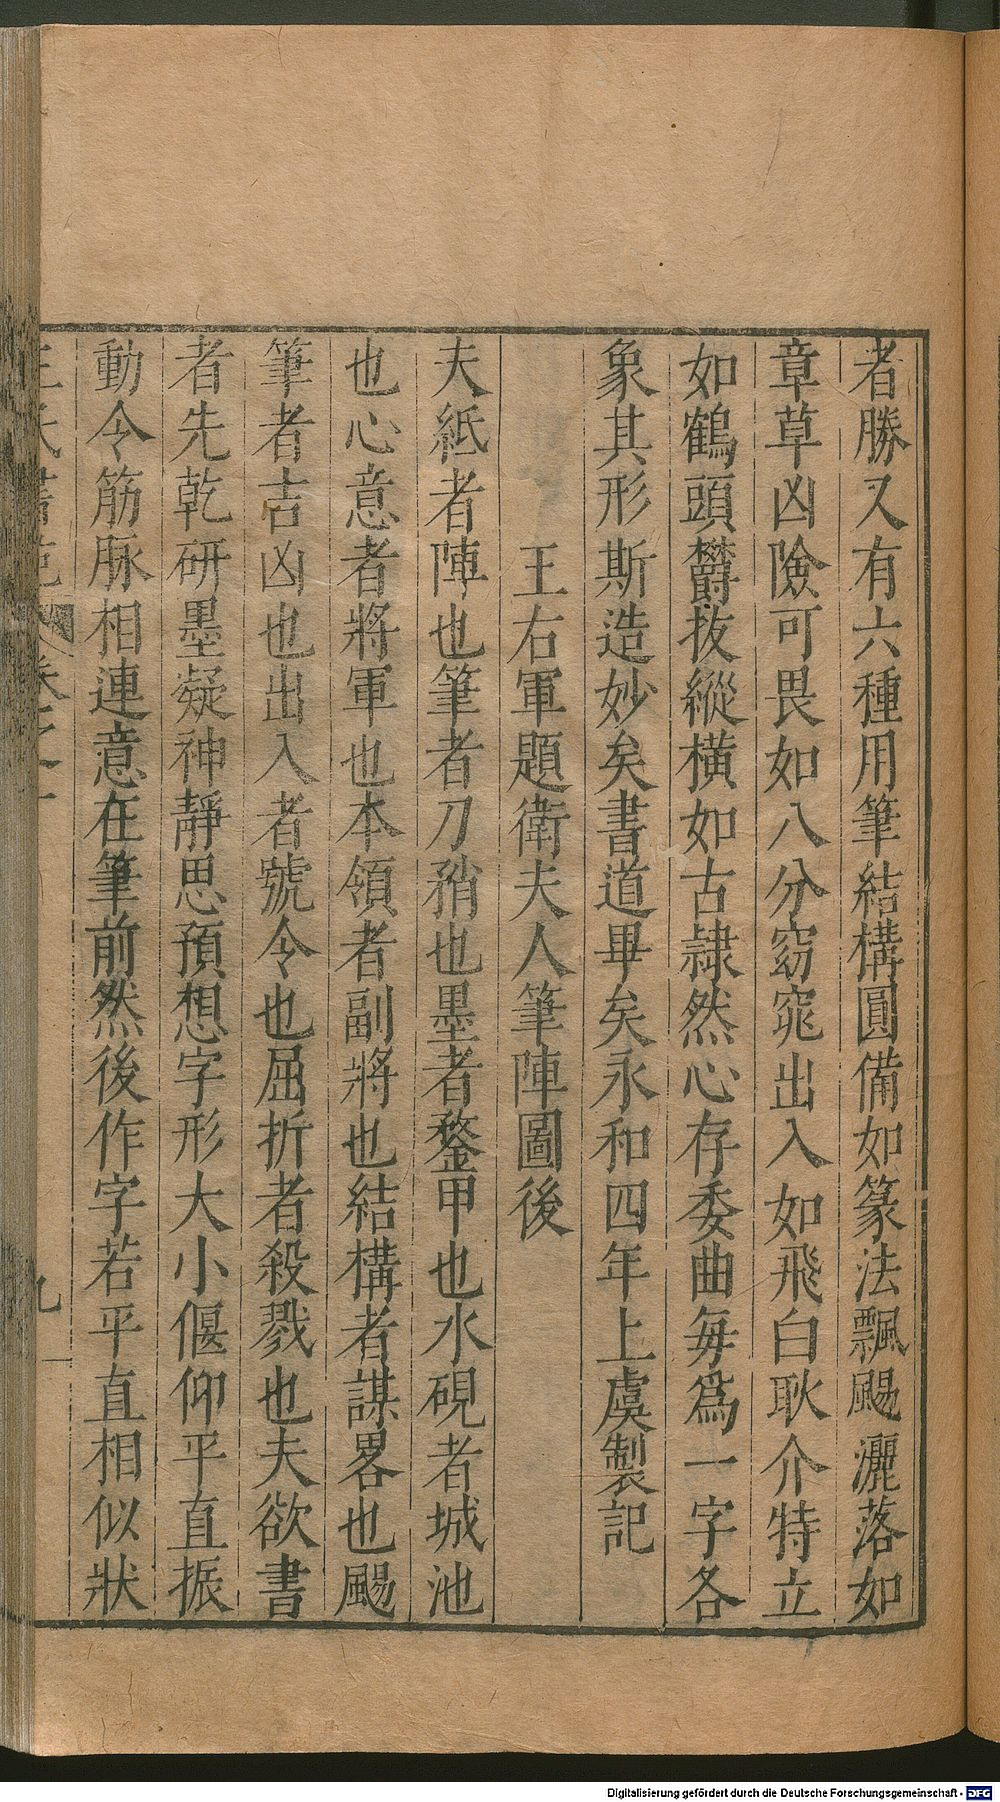 者勝又有六種用筆結構圓備如篆法飄颺灑落如
章草凶險可畏如八分窈窕出入如飛白耿介特立
如鶴頭欝拔縱橫如古隷然心存委曲每爲一字各
象其形斯造妙矣書道畢矣永和四年上虞製記
王右軍題衛夫人筆陣圖後
夫紙者陣也筆者刀矟也墨者鍪甲也水硯者城池
也心意者將軍也本領者副將也結構者謀畧也颺
筆者吉凶也出入者號令也屈折者殺戮也夫欲書
者先乾研墨凝神靜思預想字形大小偃仰平直振
動令筋脉相連意在筆前然後作字若平直相似狀
王氏書苑 卷之一 九
Digitalisierung gefördert durch die Deutsche Forschungsgemeinschaft - DFG